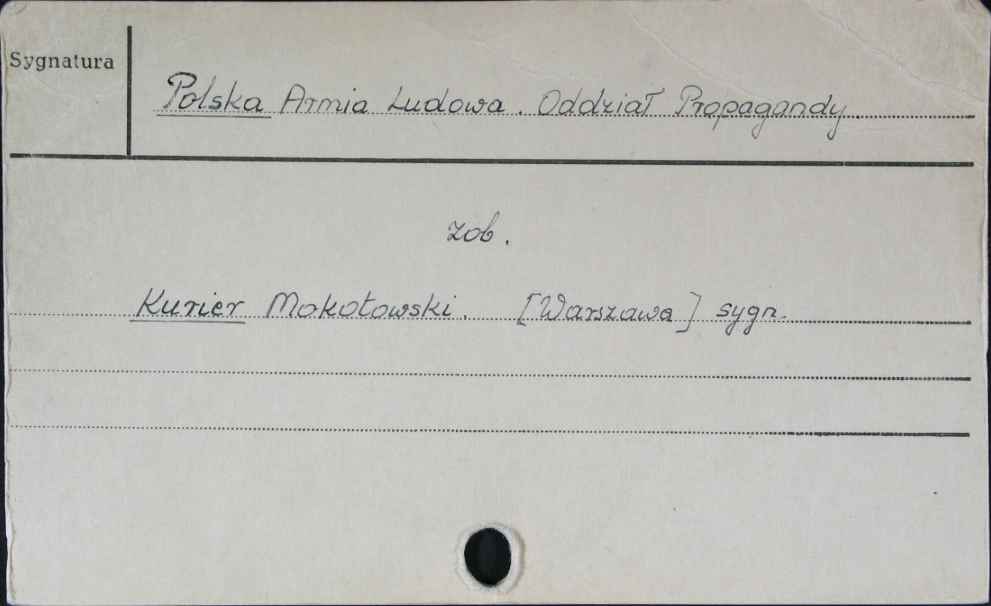 Sygnatura
Polska Armia Ludowa. Oddział Propagandy
zob.
Kurier Mokotowski. [Warszawa] sygn.